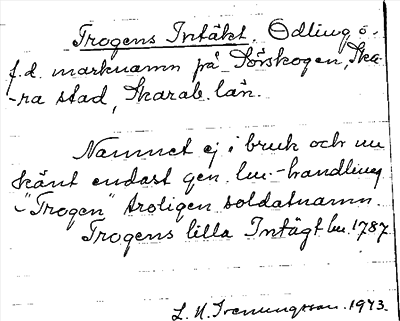 Trogens Intäkt. Odling o.
f.d. marknamn på Sörskogen, Ska-
-ra stad, Skarab. län.
Namnet ej i bruk och nu
känt endast gen. lm.-handling
-"Trogen" troligen soldatnamn.
Trogens lilla Intägt lm. 1787
L. N. 1943.